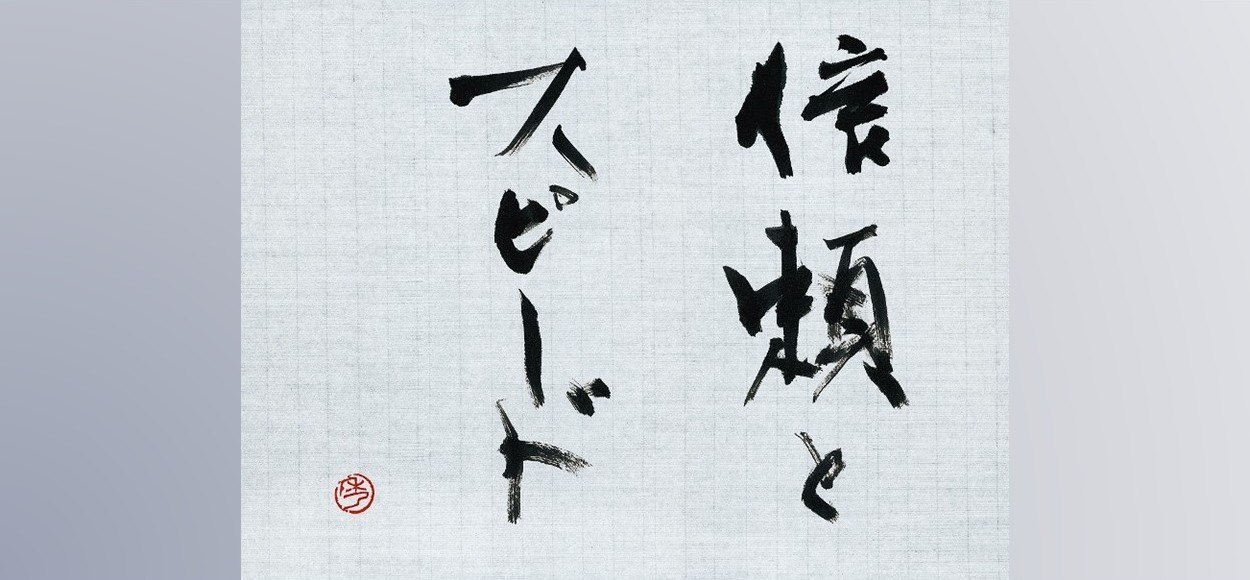 信頼と
スピード